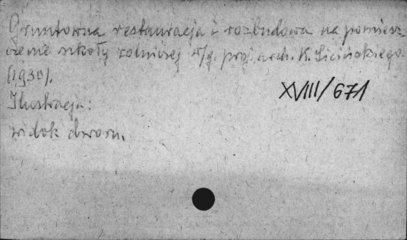 Gruntowna restauracja i rozbudowa na pomiesz
czenie szkoły rolniczej w/g. proj. arch. K. Sicińskiego.
(1930).
XVIII/671
Ilustracja:
widok dworu.